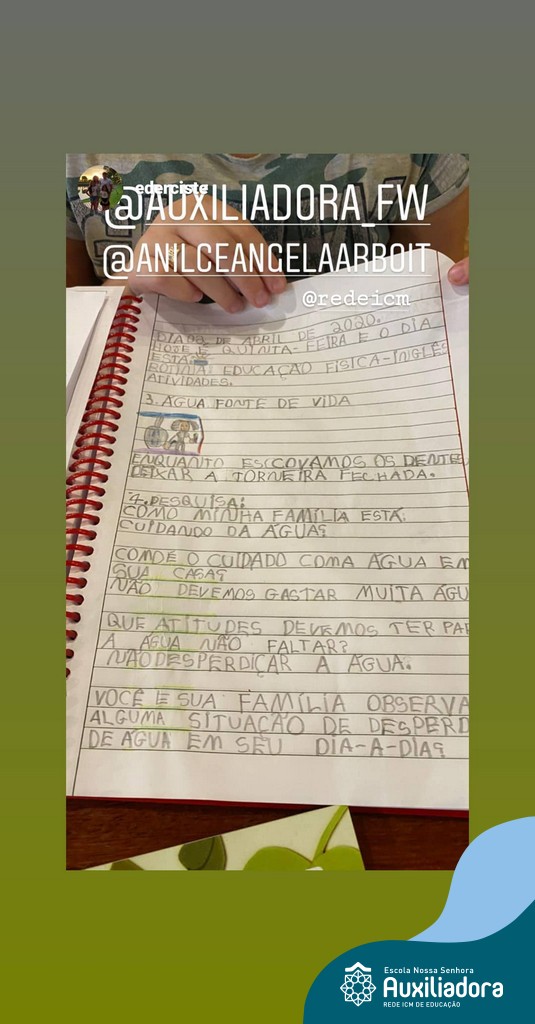 ederciste
@AUXILIADORA_FW
@ANILCEANGELAARBOIT
@redeicm
DE ABRIL DE 2020.
HOJE É QUINTA-FEIRA E O DIA
ESTÁ:
ROTINA: EDUCAÇÃO FÍSICA-INGLÊS
ATIVIDADES.
3. ÁGUA FONTE DE VIDA
ENQUANTO ESCOVAMOS OS DENTES
DEIXAR A TORNEIRA FECHADA.
4. PESQUISA:
COMO MINHA FAMÍLIA ESTÁ
CUIDANDO DA ÁGUA?
COMO É O CUIDADO COMA ÁGUA EM
SUA CASA?
NÃO DEVEMOS GASTAR MUITA ÁGU
QUE ATITUDES DEVEMOS TER PAR
A ÁGUA NÃO FALTAR?
NÃO DESPERDIÇAR A ÁGUA.
VOCÊ E SUA FAMÍLIA OBSERVA
ALGUMA SITUAÇÃO DE DESPERD
DE ÁGUA EM SEU DIA-A-DIA?
Escola Nossa Senhora
Auxiliadora
REDE ICM DE EDUCAÇÃO